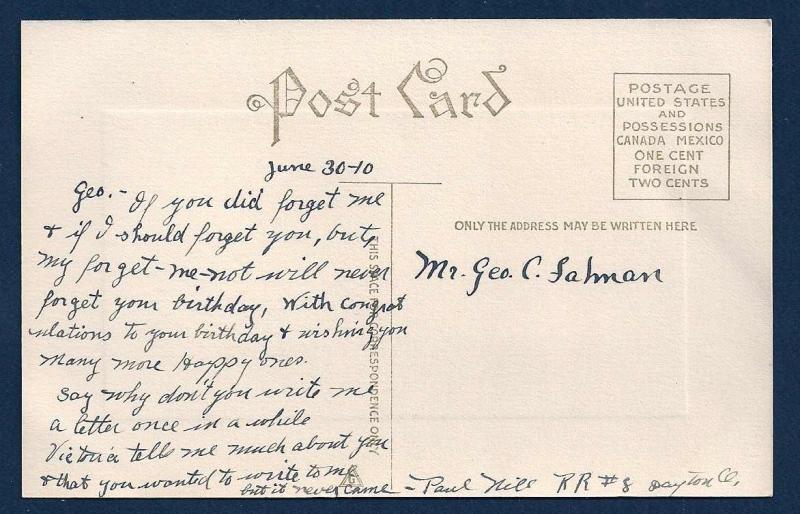 Post Card
POSTAGE
UNITED STATES
AND
POSSESSIONS
CANADA MEXICO
ONE CENT
FOREIGN
TWO CENTS
June 30-10
Geo.- If you did forget me
& if I should forget you, but
my forget-me-not will never
forget your birthday, With congrat
ulations to your birthday & wishing you
many more Happy ones.
Say why don't you write me
a letter once in a while
Victoria tells me much about you
& that you wanted to write to me
but it never came - Paul Hill RR #8 Dayton O.
THIS SPACE FOR CORRESPONDENCE ONLY
ONLY THE ADDRESS MAY BE WRITTEN HERE
Mr. Geo. C.